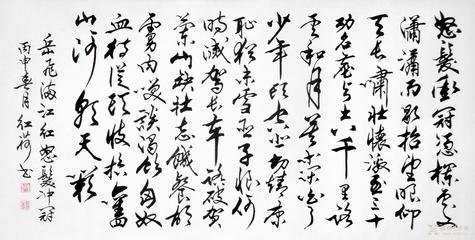 怒髮衝冠憑欄處
瀟瀟雨歇抬望眼仰
天長嘯壯懷激烈三十
功名塵與土八千里路
雲和月莫等閑白了
少年頭空悲切靖康
恥猶未雪臣子恨何
時滅駕長車踏破賀
蘭山缺壯志饑餐胡
虜肉笑談渴飲匈奴
血待從頭收拾舊
山河朝天闕
岳飛滿江紅怒髮沖冠
丙申春月 紅荷書